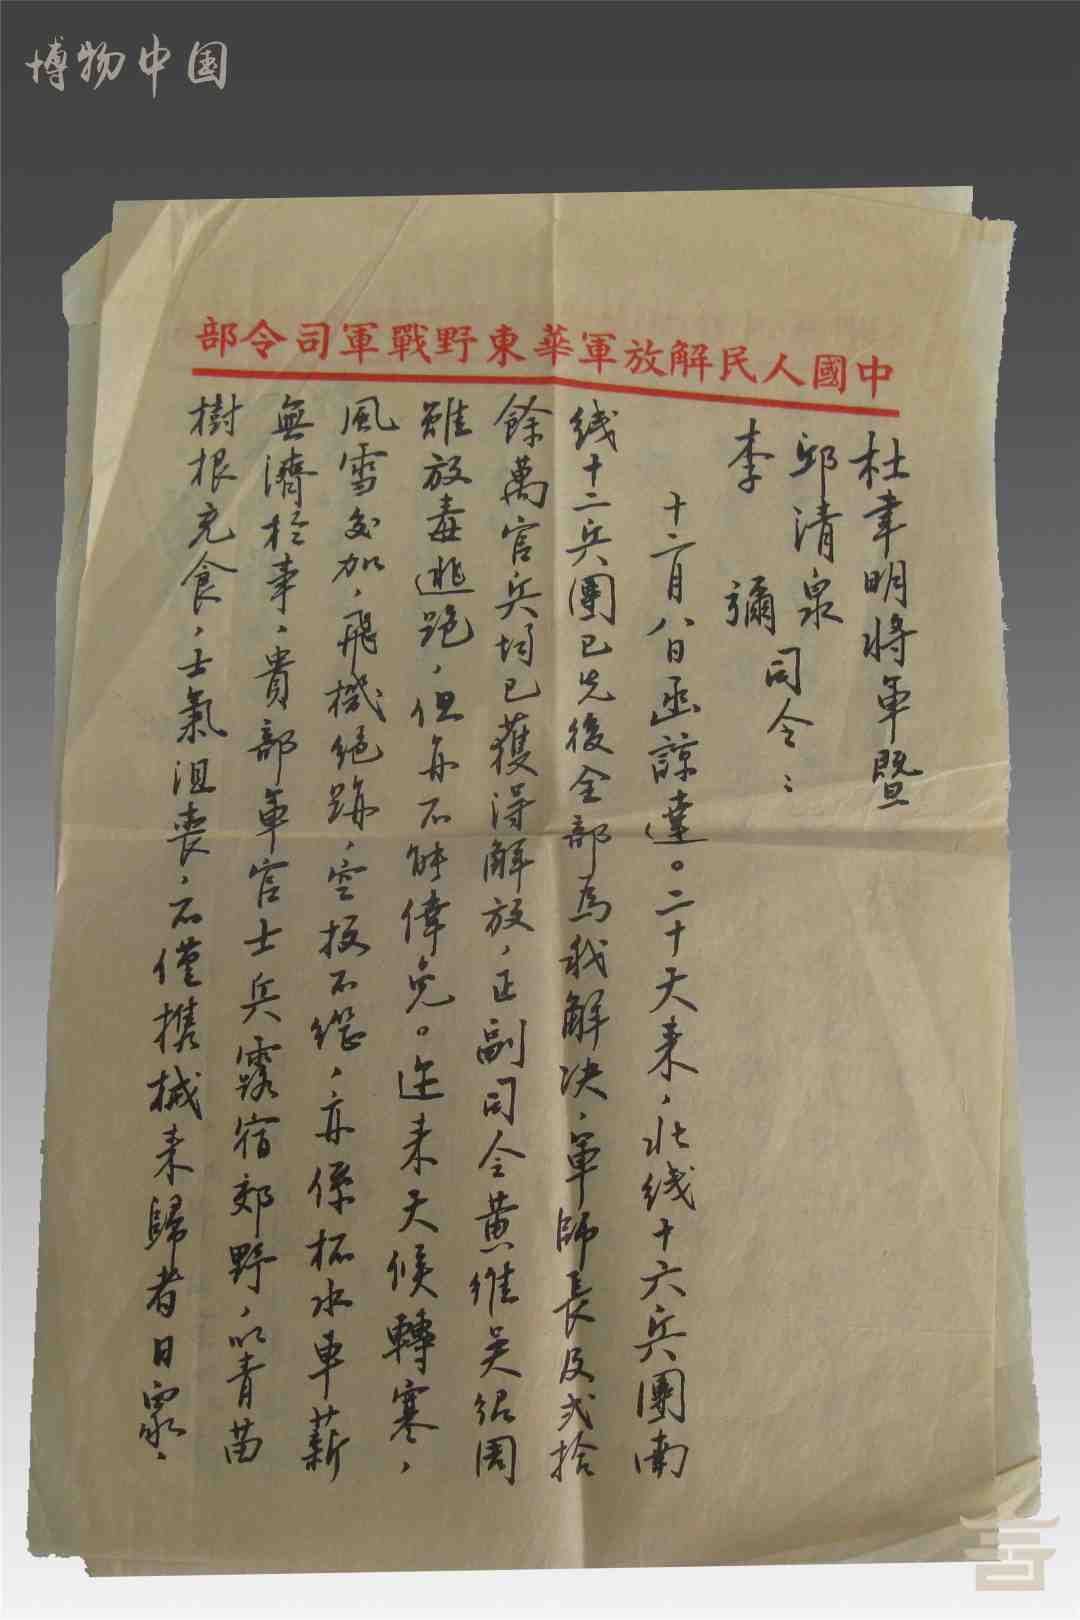 博物中国
中國人民解放軍華東野戰軍司令部
杜聿明將軍暨
邱清泉
李彌
司令：
十二月八日函諒達。二十天来，北线十六兵團南
线十二兵團已先後全部為我解决，軍師長及弍拾
餘萬官兵均已獲得解放，正副司令黄維吴绍周
雖放毒逃跑，但亦不能倖免。近来天候轉寒，
風雪交加，飛機絕跡，空投不繼，亦係杯水車薪
無濟於事，貴部軍官士兵露宿郊野，以青苗
樹根充食，士氣沮喪，不僅携械来歸者日眾，